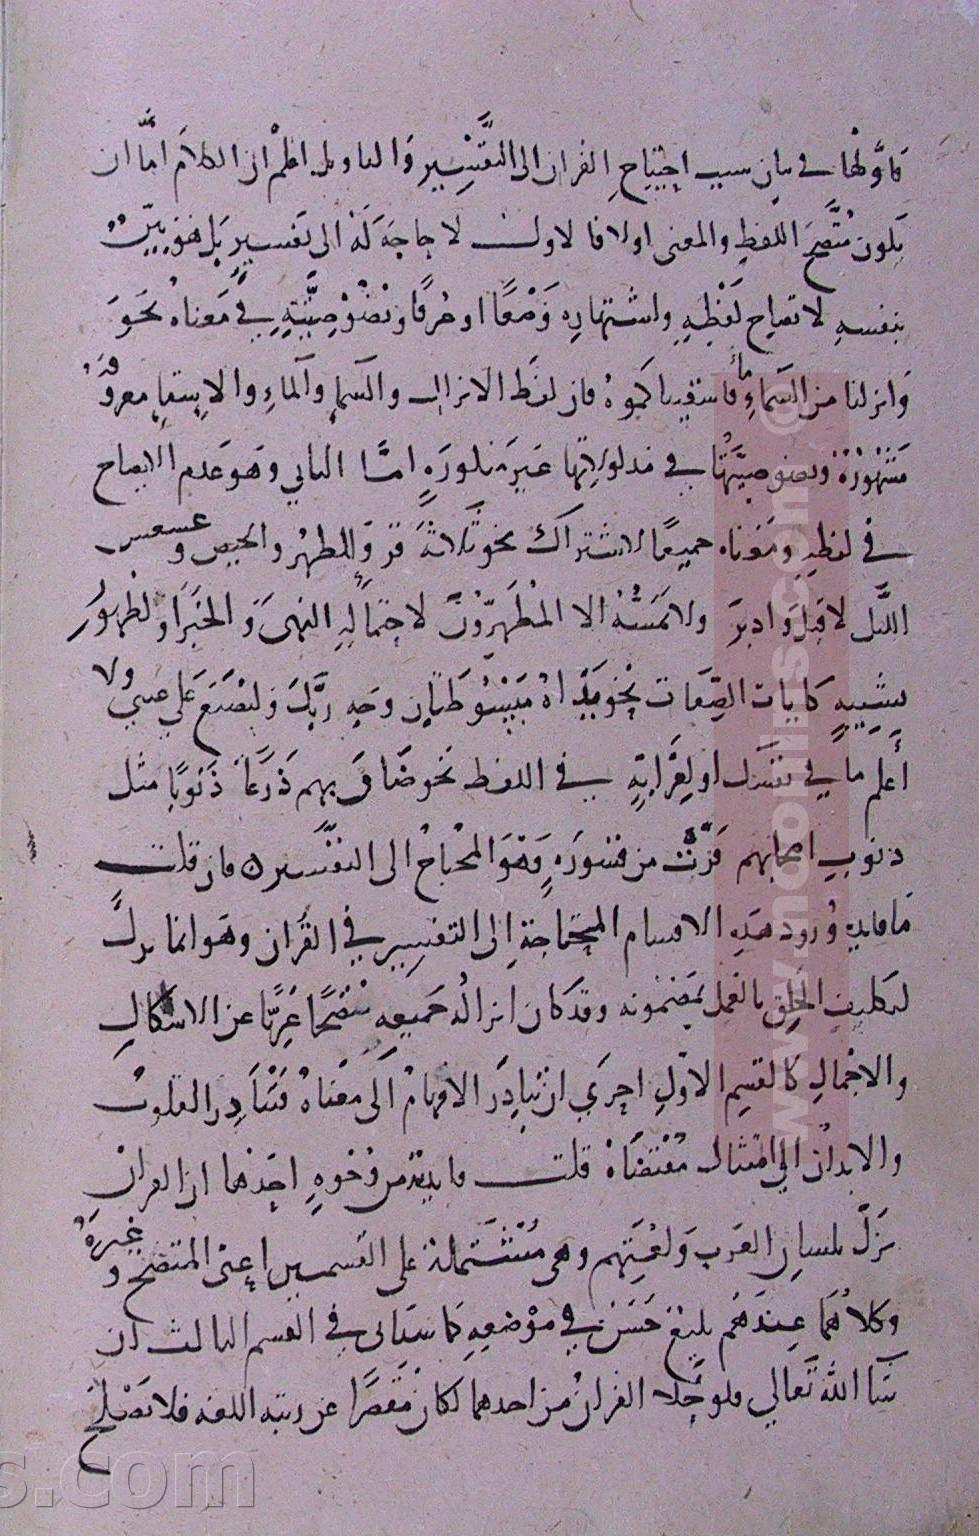 فاولها في بيان سبب احتياج القران الى التفسير والتاويل اعلم ان الكلام اما ان
يكون متضح اللفظ والمعنى اولا فالاول لا حاجة له الى تفسير بل هو بين
بنفسه لاتضاح لفظه واشتهاره وضعا او عرفا ونصوصيته في معناه نحو
وانزلنا من السماء ماء فاسقيناكموه فان لفظ الانزال والسماء والماء والاسقاء معروفة
مشهورة ونصوصيتها في مدلولاتها غير منكورة اما الثاني وهو عدم الاتضاح
في لفظه ومعناه جميعا لاشتراك نحو ثلاثة قروء للطهر والحيض وعسعس
الليل لاقبل وادبر ولا يمسه الا المطهرون لاحتماله النهي والخبر او لظهور
تشبيه كايات الصفات نحو يداه مبسوطتان وجه ربك ولتصنع على عيني ولا
أعلم ما في نفسك او لغرابته في اللفظ نحو ضاق بهم ذرعا ذنوبا مثل
ذنوب اصحابهم فرت من قسورة وهو المحتاج الى التفسير فان قلت
ما فايدة ورود هذه الاقسام المحتاجة الى التفسير في القران وهو انما نزل
لتكليف الخلق بالعمل بمضمونه وقد كان انزاله جميعه متضحا عريا عن الاشكال
والاجمال كالقسم الاول احرى ان تبادر الافهام الى معناه فتبادر القلوب
والابدان الى امتثال مقتضاه قلت فايدته من وجوه احدها ان القران
نزل بلسان العرب ولغتهم وهي مشتملة على القسمين اعني المتضح وغيره
وكلاهما عندهم بليغ حسن في موضعه كما سياتي في القسم الثالث ان
شا الله تعالى فلو خلا القران من احدهما لكان مقصرا عن رتبة اللغة فلا يصلح
www.noolies.com ©
s.com